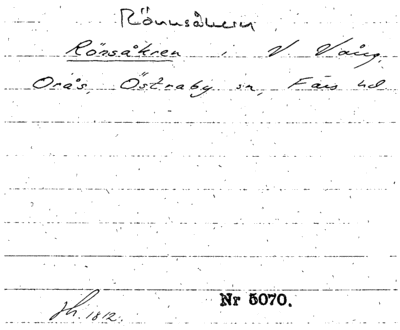 Rönnsåkern
Rönsåkren i V. Vång,
Orås, Östraby sn, Färs hd
Nr 5070.
Jh. 1812.